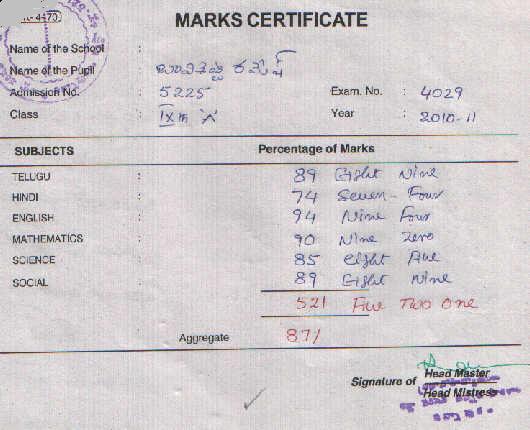 MARKS CERTIFICATE
Name of the School :
Name of the Pupil : రమేష్
Admission No. : 5225 Exam. No. : 4029
Class : IXth 'A' Year : 2010-11
SUBJECTS Percentage of Marks
TELUGU : 89 Eight Nine
HINDI : 74 Seven-Four
ENGLISH : 94 Nine Four
MATHEMATICS : 90 Nine Zero
SCIENCE : 85 Eight Five
SOCIAL : 89 Eight Nine
521 Five Two One
Aggregate 87/
Signature of Head Master
Head Mistress